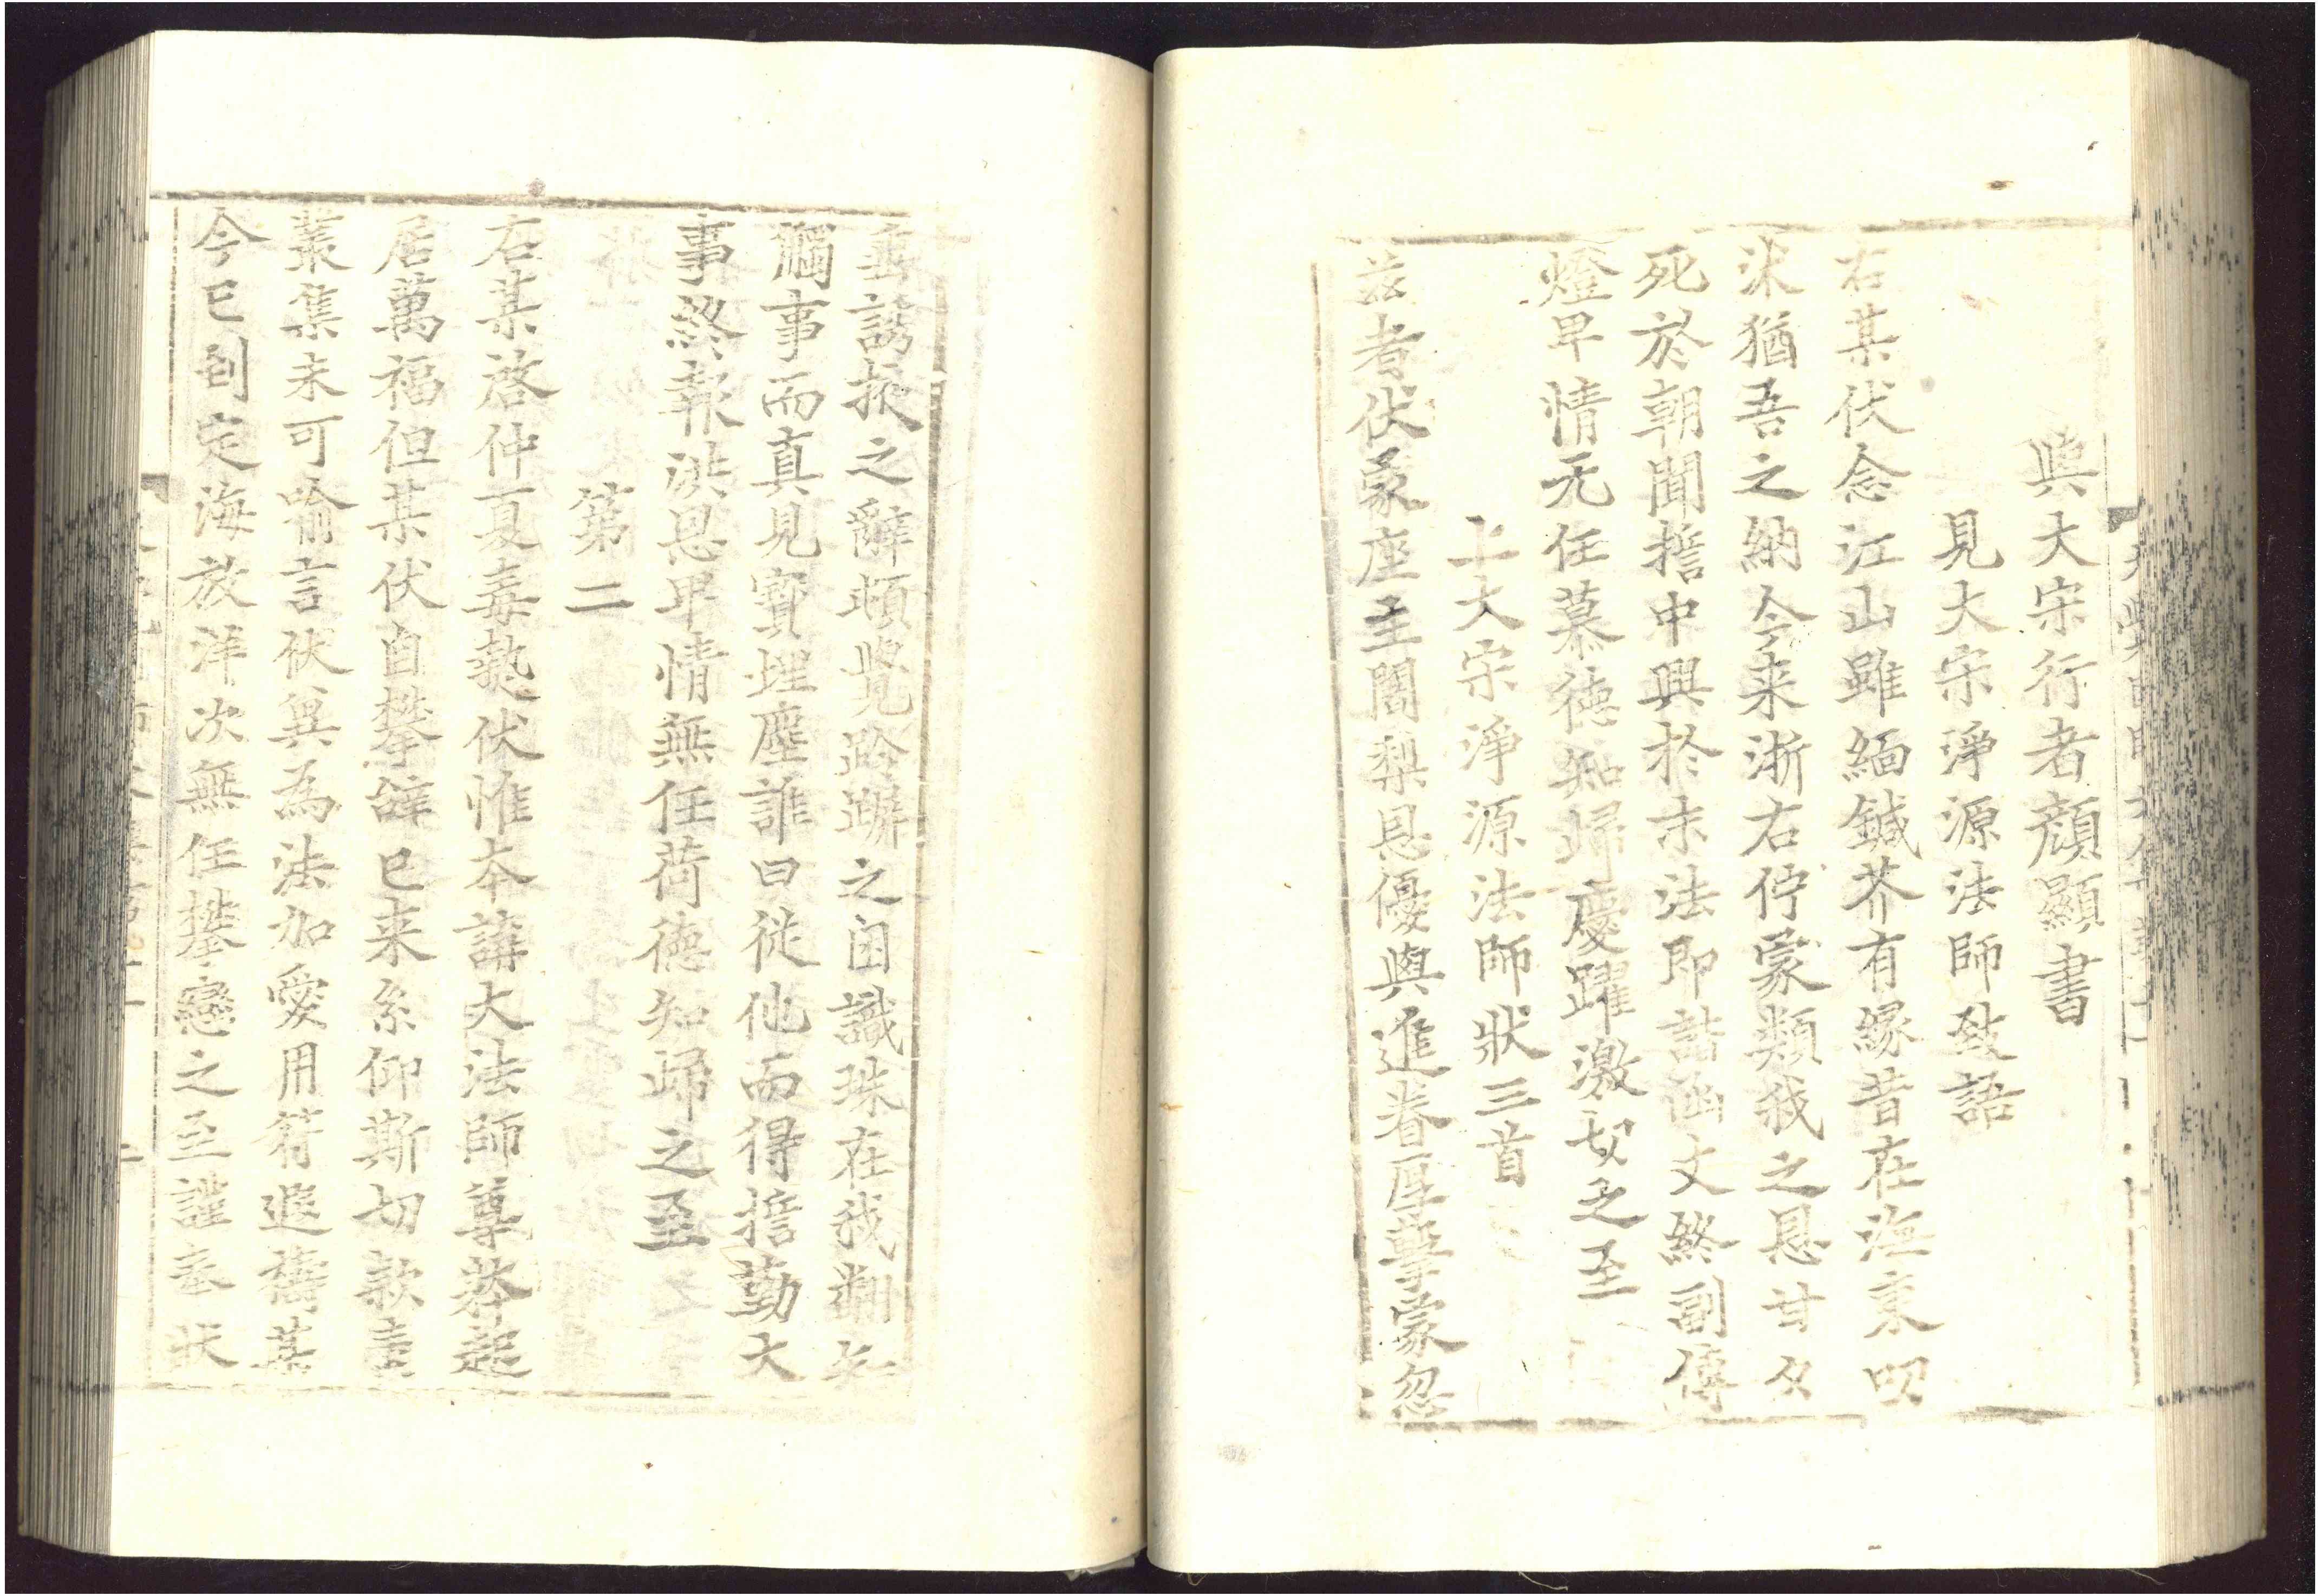 與大宋行者顏顯書
見大宋淨源法師致語
右某伏念江山雖緬鍼芥有緣昔在海東叨
求猶吾之納今来浙右佇蒙類我之恩甘夕
死於朝聞擔中興於末法即諧函文終副傳
燈卑情无任慕德知歸慶躍激切之至
上大宋淨源法師狀三首
兹者伏蒙座主闍梨恩優與進眷厚擊蒙忽
垂誘掖之辭頓覺跉跰之困識珠在我剏
觸事而真見寶埋塵誰曰従他而得擔勤大
事終報洪恩卑情無任荷德知歸之至
第二
右某啓仲夏毒熱伏惟本講大法師尊候起
居萬福但某伏自攀辭已来系仰斯切欵
叢集未可喻言伏冀為法加愛用符遐禱某
今已到定海放洋次無任攀戀之至謹奉狀